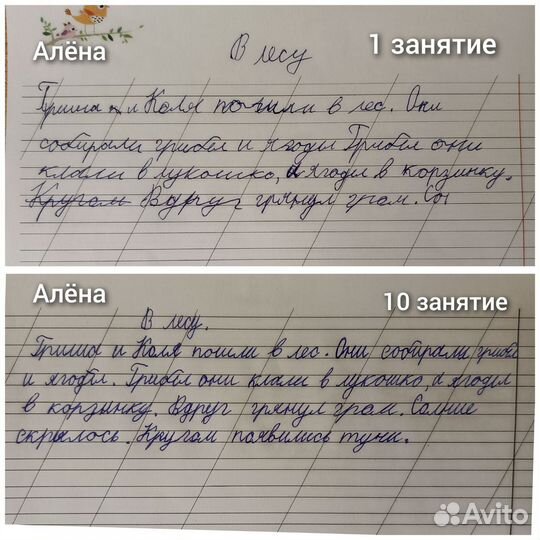 Алёна
1 занятие
В лесу
Гриша и Коля пошли в лес. Они
собирали грибы и ягоды Грибы они
клали в лукошко, а ягоды в корзинку.
Кругом Вдруг грянул грам. Сол
Алёна
10 занятие
В лесу.
Гриша и Коля пошли в лес. Они собирали грибы
и ягоды. Грибы они клали в лукошко, а ягоды
в корзинку. Вдруг грянул грам. Солнце
скрылось. Кругом появились тучи.
Avito